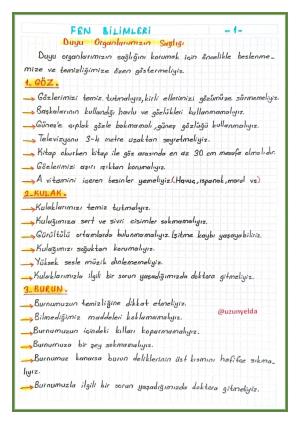 FEN BİLİMLERİ -1-
Duyu Organlarımızın Sağlığı
Duyu organlarımızın sağlığını korumak için öncelikle beslenme-
mize ve temizliğimize özen göstermeliyiz.
1. GÖZ.
→ Gözlerimizi temiz tutmalıyız, kirli ellerimizi gözümüze sürmemeliyiz.
→ Başkalarının kullandığı havlu ve gözlükleri kullanmamalıyız.
→ Güneş'e çıplak gözle bakmamalı, güneş gözlüğü kullanmalıyız.
→ Televizyonu 3-4 metre uzaktan seyretmeliyiz.
→ Kitap okurken kitap ile göz arasında en az 30 cm mesafe olmalıdır.
→ Gözlerimizi aşırı ışıktan korumalıyız.
→ A vitamini içeren besinler yemeliyiz (Havuç, ıspanak, marul vs)
2. KULAK.
→ Kulaklarımızı temiz tutmalıyız.
→ Kulağımıza sert ve sivri cisimler sokmamalıyız.
→ Gürültülü ortamlarda bulunmamalıyız. (işitme kaybı yaşayabiliriz.
→ Kulağımızı soğuktan korumalıyız.
→ Yüksek sesle müzik dinlememeliyiz.
→ Kulaklarımızla ilgili bir sorun yaşadığımızda doktora gitmeliyiz.
3. BURUN.
→ Burnumuzun temizliğine dikkat etmeliyiz.
→ Bilmediğimiz maddeleri koklamamalıyız.
@uzunyelda
→ Burnumuzun içindeki kılları koparmamalıyız.
→ Burnumuza bir şey sokmamalıyız.
→ Burnumuz kanarsa burun deliklerinin üst kısmını hafifçe sıkma-
lıyız.
→ Burnumuzla ilgili bir sorun yaşadığımızda doktora gitmeliyiz.